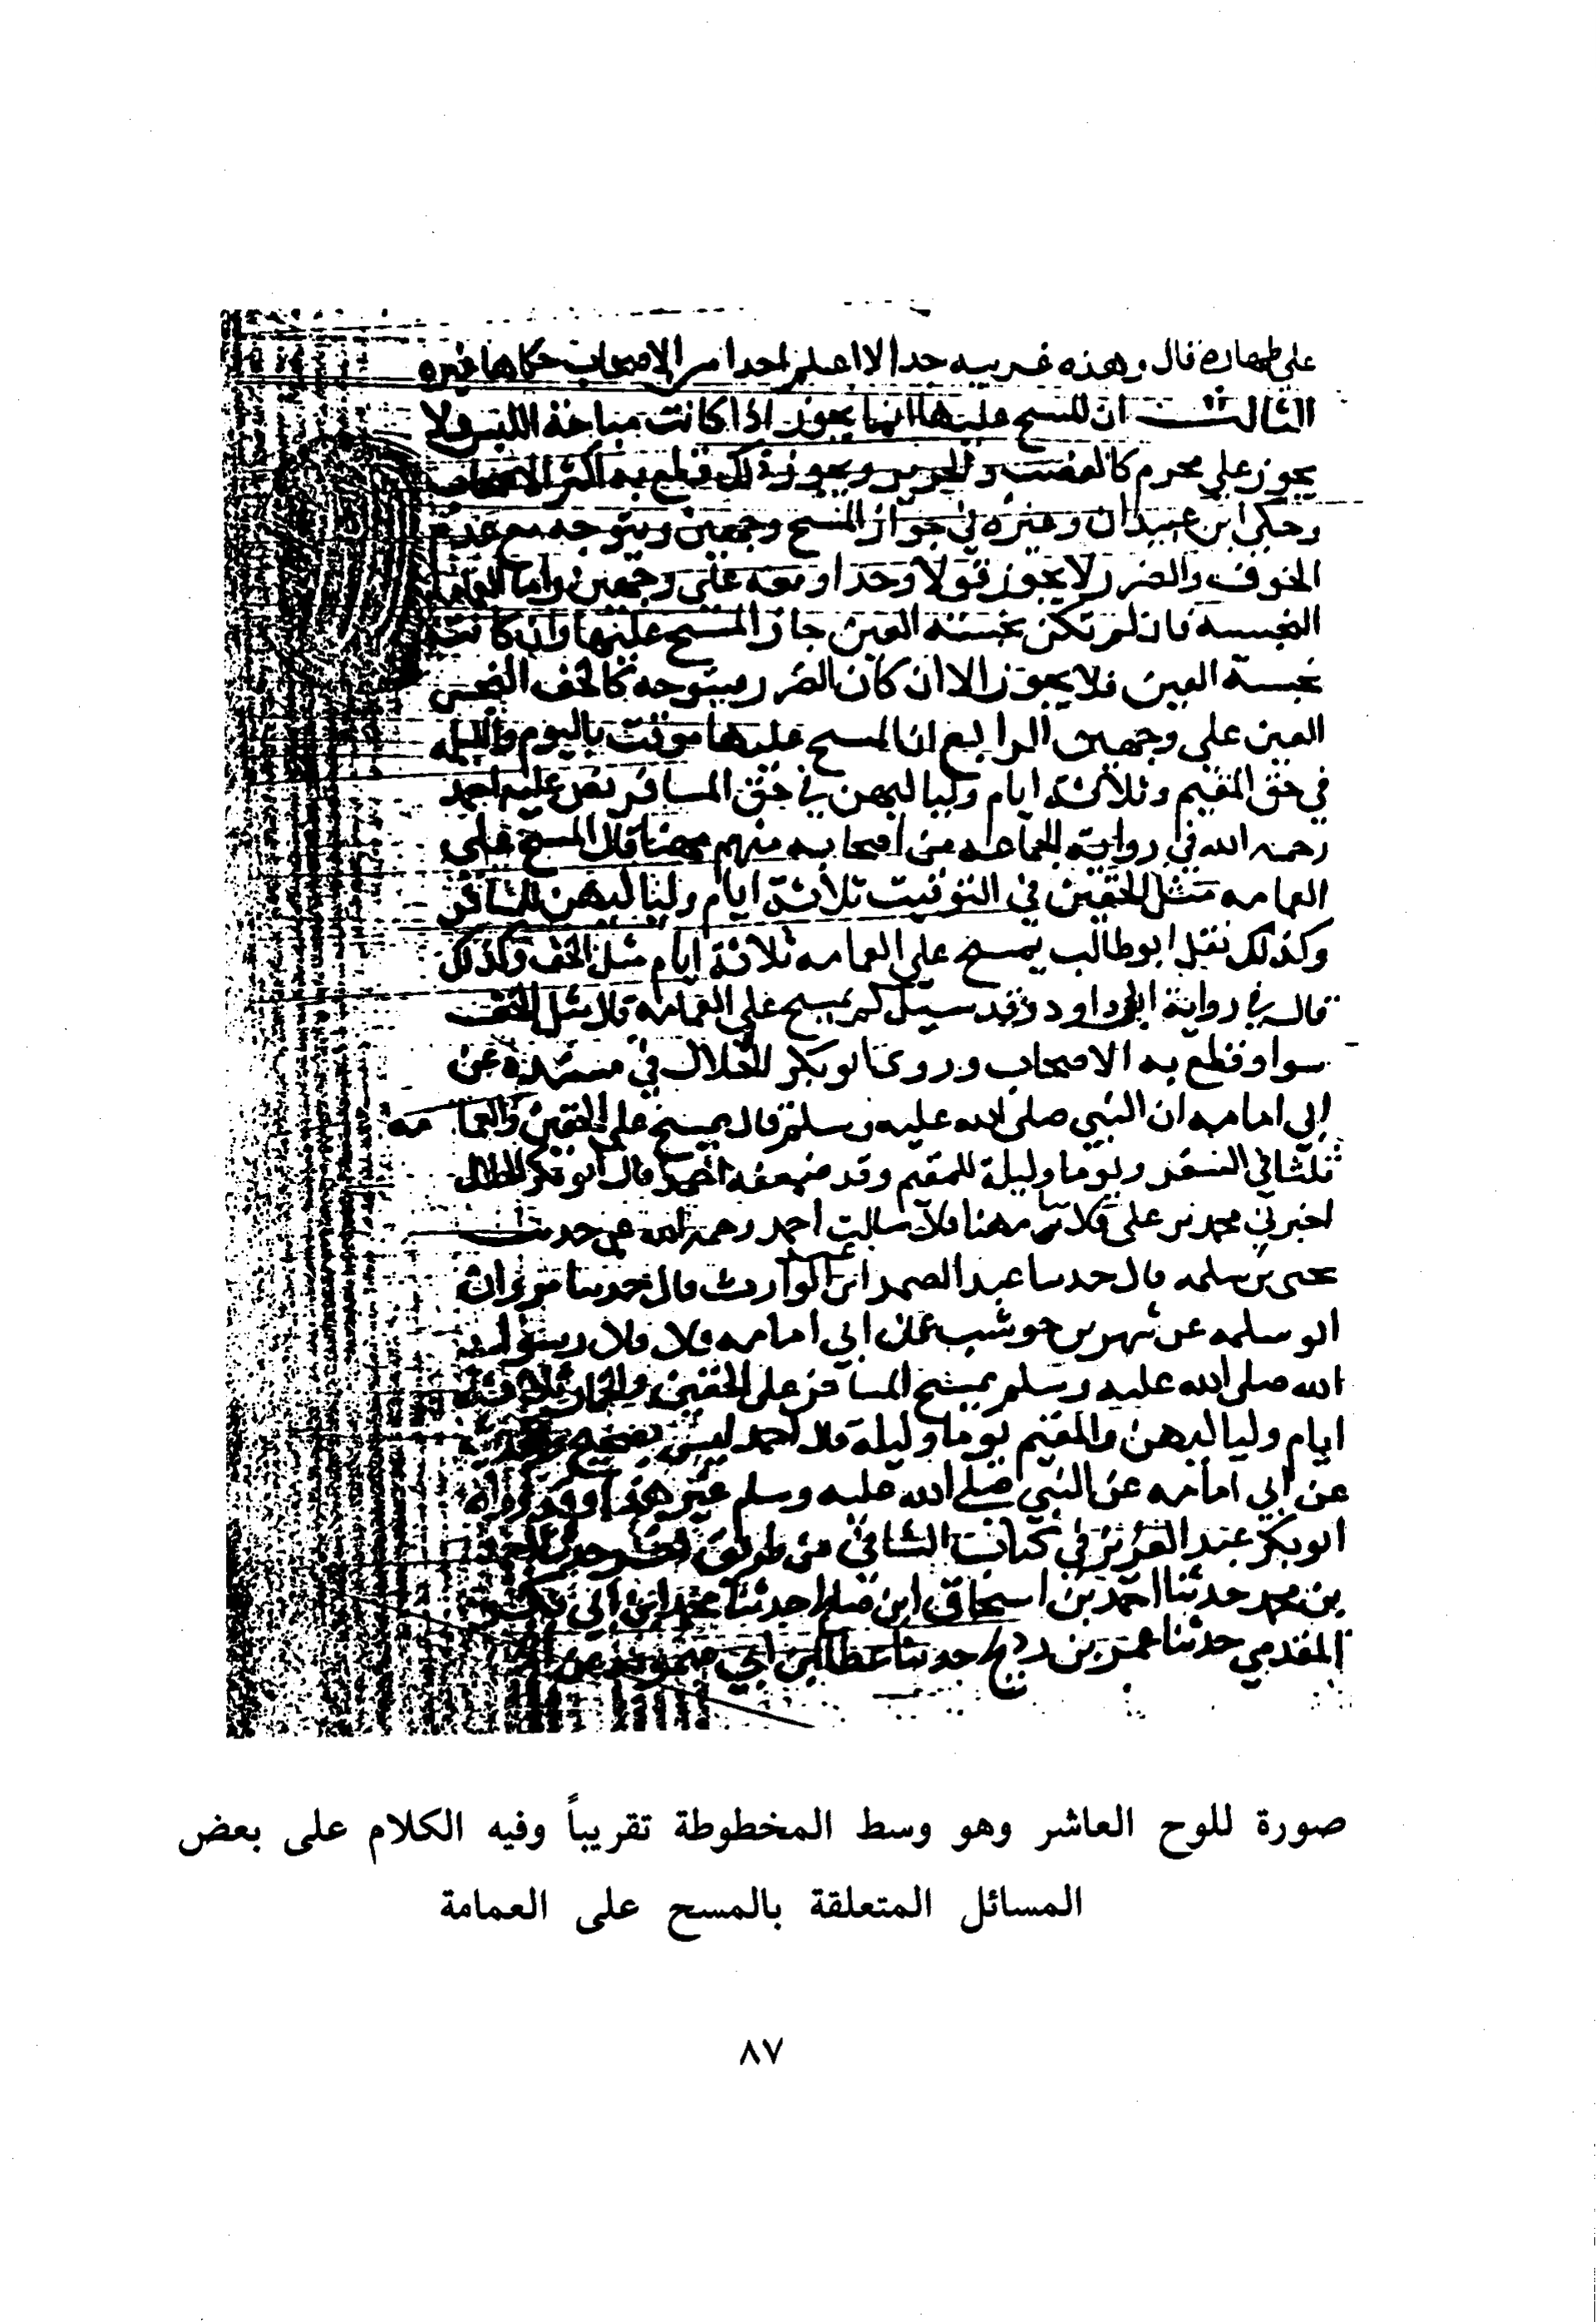 على طهارة قال وهذه غريبه جدا لا اعلم احدا من الاصحاب حكاها غيره
الثالث ان المسح عليها انما يجوز اذا كانت مباحة اللبس ولا
يجوز على محرم كالغصب والحرير ويجوز ذلك قطع به اكثر الاصحاب
وحكى ابن عبيدان وغيره في جواز المسح وجهين ويتوجه مع عدم
الخوف والضرر لا يجوز قولا وحدا ومعه على وجهين واما العمامة
النجسه فان لم تكن نجسة العين جاز المسح عليها وان كانت
نجسة العين فلا يجوز الا ان كان لضرر فيتوجه كالخف النجس
العين على وجهين الرابع ان المسح عليها موقت باليوم والليله
في حق المقيم وثلاثة ايام ولياليهن في حق المسافر نص عليه احمد
رحمه الله في رواية الجماعه من اصحابه منهم مهنا قال المسح على
العمامه مثل الخفين في التوقيت ثلاثة ايام ولياليهن للمسافر
وكذلك نقل ابو طالب يمسح على العمامه ثلاثة ايام مثل الخف وكذلك
قال في رواية ابي داود وقد سيل كم يمسح على العمامه قال مثل الخف
سوا وقطع به الاصحاب وروى ابو بكر الخلال في مسنده عن
ابي امامه ان النبي صلى الله عليه وسلم قال يمسح على الخفين والعمامه
ثلثا في السفر ويوما وليلة للمقيم وقد ضعفه احمد قال ابو بكر الخلال
اخبرني محمد بن علي قال ثنا مهنا قال سالت احمد رحمه الله عن حديث
يحيى بن سلمه قال حدثنا عبد الصمد ابن عبد الوارث قال حدثنا مروان
ابو سلمه عن شهر بن حوشب عن ابي امامه قال قال رسول
الله صلى الله عليه وسلم يمسح المسافر على الخفين والخمار ثلاثة
ايام ولياليهن والمقيم يوما وليلة قال احمد ليس بصحيح
عن ابي امامه عن النبي صلى الله عليه وسلم غير هذا وقد رواه
ابو بكر عبد العزيز في كتاب الشافي من طريق
بن محمد حدثنا احمد بن اسحاق ابن صالح حدثنا محمد ابن ابي بكر
المقدمي حدثنا عمر بن رديح حدثنا عطا بن ابي ميمونة عن
صورة للوح العاشر وهو وسط المخطوطة تقريباً وفيه الكلام على بعض
المسائل المتعلقة بالمسح على العمامة
٨٧